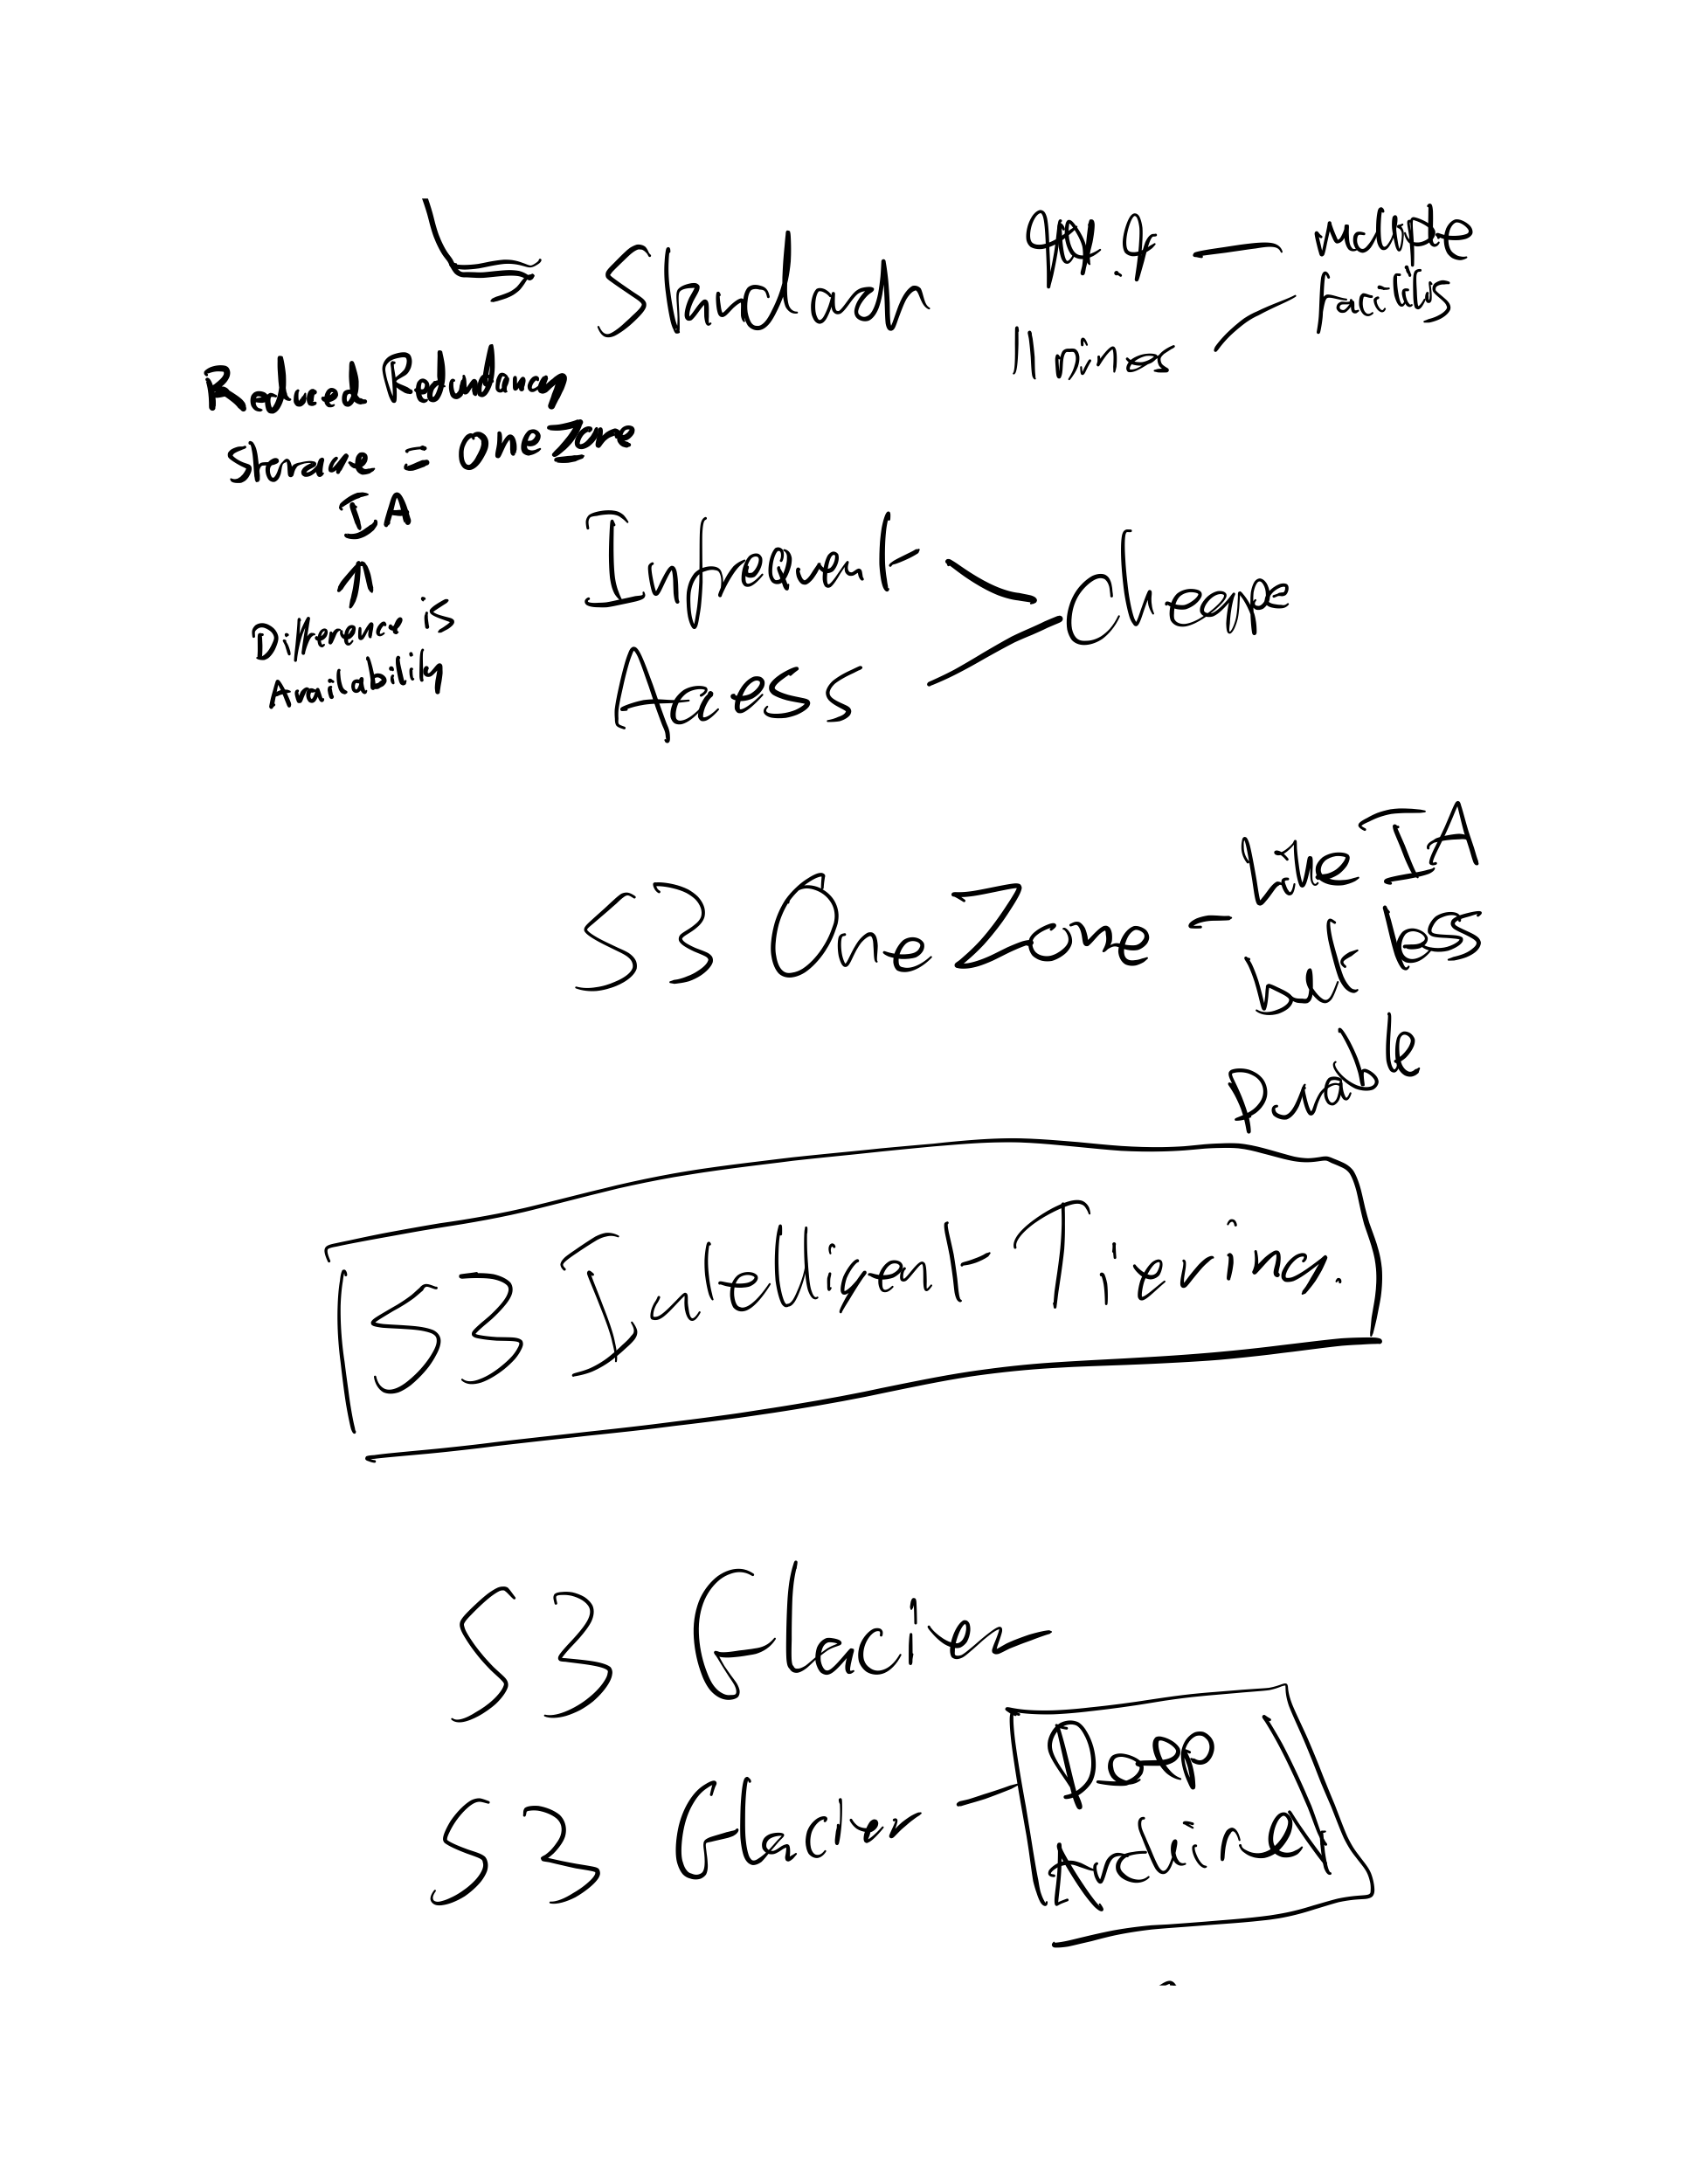 Standard
99.9 — multiple
11 nines facilities
Reduced Redundancy
Storage = One Zone
IA
Difference is
Availability
Infrequent
Access
Cheap
S3 One Zone - Like IA
but less
Durable
S3 Intelligent Tiering.
S3 Glacier
S3 Glacier - Deep
Archive